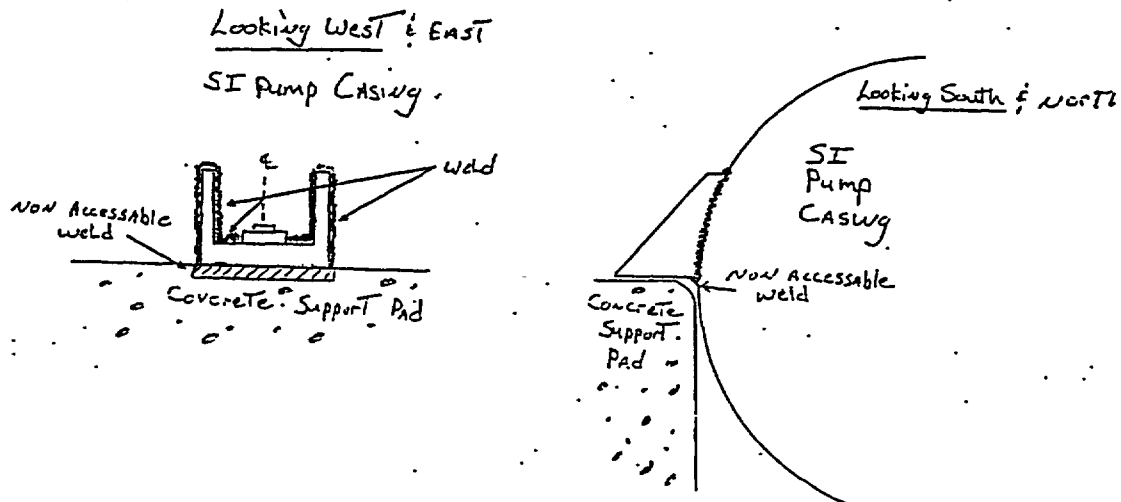 Looking West & EAST
SI Pump CASING.
℄
weld
NON AccessAble
weld
Concrete Support PAd
Looking South & North
SI
Pump
CASING
NON AccessAble
weld
Concrete
Support
PAd